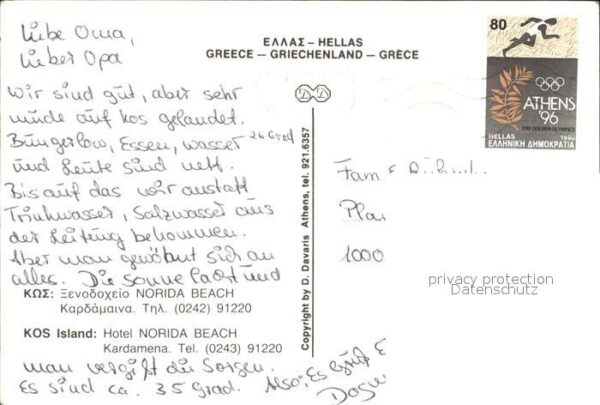 Liebe Oma,
Lieber Opa
Wir sind gut, aber sehr
müde auf Kos gelandet.
Bungerlow, Essen, wasser 26 Grad
und Leute sind nett.
Bis auf das wir anstatt
Trinkwasser, Salzwasser aus
der Leitung bekommen.
Aber man gewöhnt sich an
alles. Die Sonne lacht und
ΚΩΣ: Ξενοδοχείο NORIDA BEACH
Καρδάμαινα. Τηλ. (0242) 91220
KOS Island: Hotel NORIDA BEACH
Kardamena. Tel. (0243) 91220
man vergißt die Sorgen.
Es sind ca. 35 Grad. Also; Es grüßt E
Dagm
ΕΛΛΑΣ – HELLAS
GREECE – GRIECHENLAND – GRÈCE
Copyright by D. Davaris Athens, tel. 921.6357
80
ATHENS
'96
THE GOLDEN OLYMPICS
HELLAS 1990
ΕΛΛΗΝΙΚΗ ΔΗΜΟΚΡΑΤΙΑ
Fam
1000
privacy protection
Datenschutz